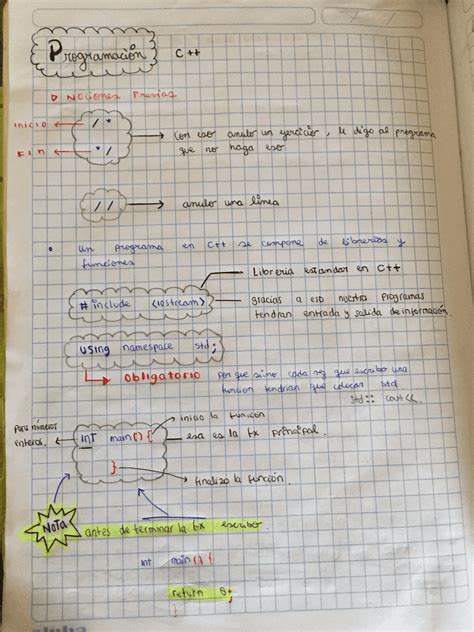 Programación C++
▷ Nociones Previas
inicio ← /* → Con eso anulo un ejercicio, le digo al programa
Fin ← */ que no haga eso
// → anulo una linea
• Un programa en C++ se compone de librerias y
funciones
Libreria estandar en C++
#include <iostream> gracias a eso nuestros programas
tendran entrada y salida de información.
using namespace std;
obligatorio porque sino cada vez que escriba una
funcion tendrian que colocar std
std:: cout<<
inicio la función
para
enteros. ← int main() { → esa es la fx principal.
} finalizo la función.
NOTA antes de terminar la fx escribo.
int main() {
return 0;
}